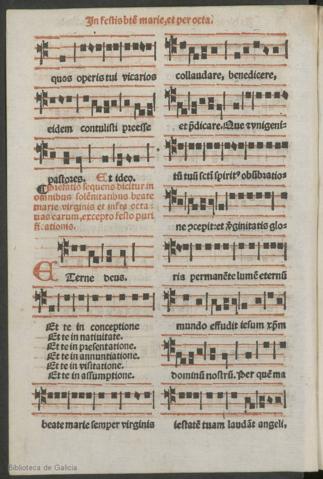 In festis btē marie, et per octa.
quos operis tui vicarios
eidem contulisti preesse
pastores. Et ideo.
Prefatio sequens dicitur in
omnibus solēnitatibus beate
marie virginis et infra octa
uas earum, excepto festo puri
ficationis.
ETerne deus.
Et te in conceptione
Et te in natiuitate.
Et te in presentatione.
Et te in annuntiatione.
Et te in visitatione.
Et te in assumptione.
beate marie semper virginis
collaudare, benedicere,
et p̄dicare. Que ⁊ vnigeni-
tū tuū scti spirit⁹ obūbratio-
ne ↄcepit: et v̄ginitatis glo-
ria permanēte lumē eternū
mundo effudit iesum xp̄m
dominū nostrū. Per quē ma
iestatē tuam laudāt angeli,
Biblioteca de Galicia